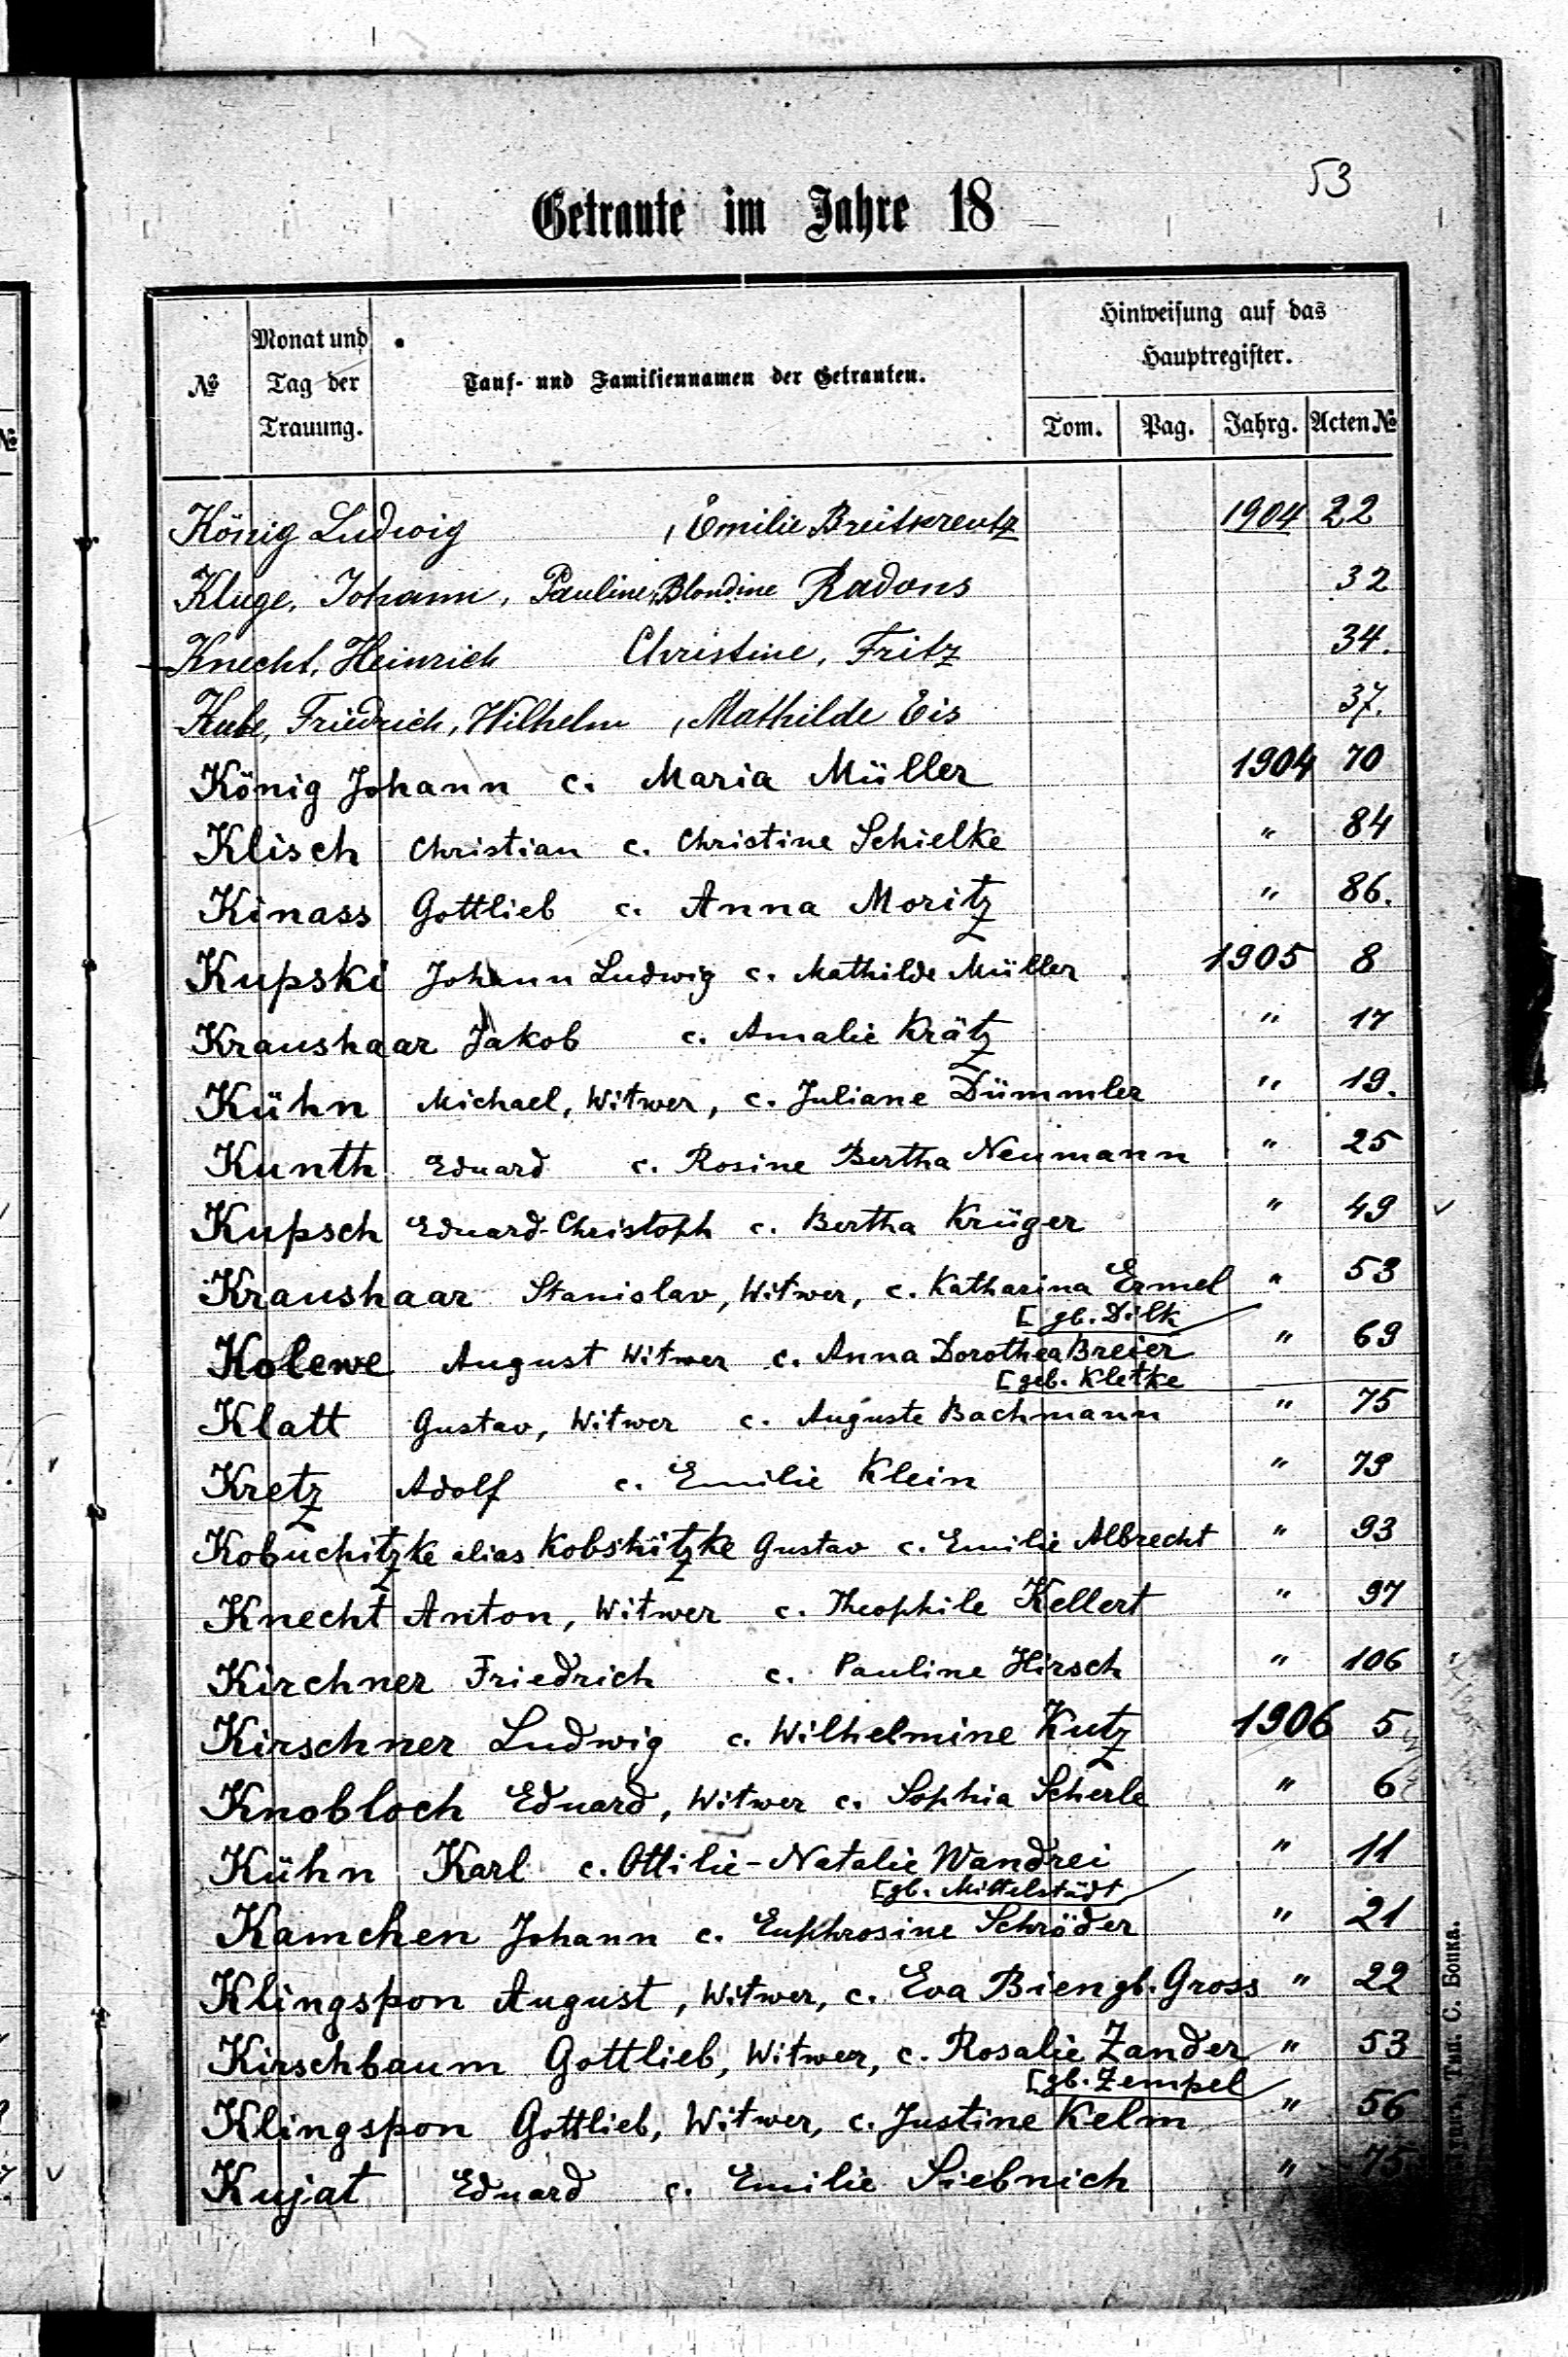 53
Getraute im Jahre 18
№ Monat und Tag der Trauung. Tauf- und Familiennamen der Getrauten. Hinweisung auf das Hauptregister.
Tom. Pag. Jahrg. Acten №
König Ludwig , Emilie Breitkreutz 1904 22
Kluge, Johann, Pauline, Blondine Radons 32
Knecht, Heinrich Christine, Fritz 34.
Kube, Friedrich, Wilhelm , Mathilde Eis 37.
König Johann c. Maria Müller 1904 70
Klisch Christian c. Christine Schielke " 84
Kinass Gottlieb c. Anna Moritz " 86.
Kupski Johann Ludwig c. Mathilde Müller 1905 8
Kraushaar Jakob c. Amalie Krätz " 17
Kühn Michael, Witwer, c. Juliane Dümmler " 19.
Kunth Eduard c. Rosine Bertha Neumann " 25
Kupsch Eduard-Christoph c. Bertha Krüger " 49
Kraushaar Stanislav, Witwer, c. Katharina Ermel " 53
[gb. Dilk
Kolewe August Witwer c. Anna Dorothea Breier " 69
[geb. Kletke
Klatt Gustav, Witwer c. Auguste Bachmann " 75
Kretz Adolf c. Emilie Klein " 79
Kobuchitzke alias Kobshitzke Gustav c. Emilie Albrecht " 93
Knecht Anton, Witwer c. Theophile Kellert " 97
Kirchner Friedrich c. Pauline Hirsch " 106
Kirschner Ludwig c. Wilhelmine Kutz 1906 5
Knobloch Eduard, Witwer c. Sophia Scherle " 6
Kühn Karl c. Ottilie-Natalie Wandrei " 11
[gb. Mittelstädt
Kamchen Johann c. Euphrosine Schröder " 21
Klingspon August, Witwer, c. Eva Bien gb. Gross " 22
Kirschbaum Gottlieb, Witwer, c. Rosalie Zander " 53
[gb. Zempel
Klingspon Gottlieb, Witwer, c. Justine Kelm " 56
Kujat Eduard c. Emilie Siebnich " 75
Тип. С. Бопка.